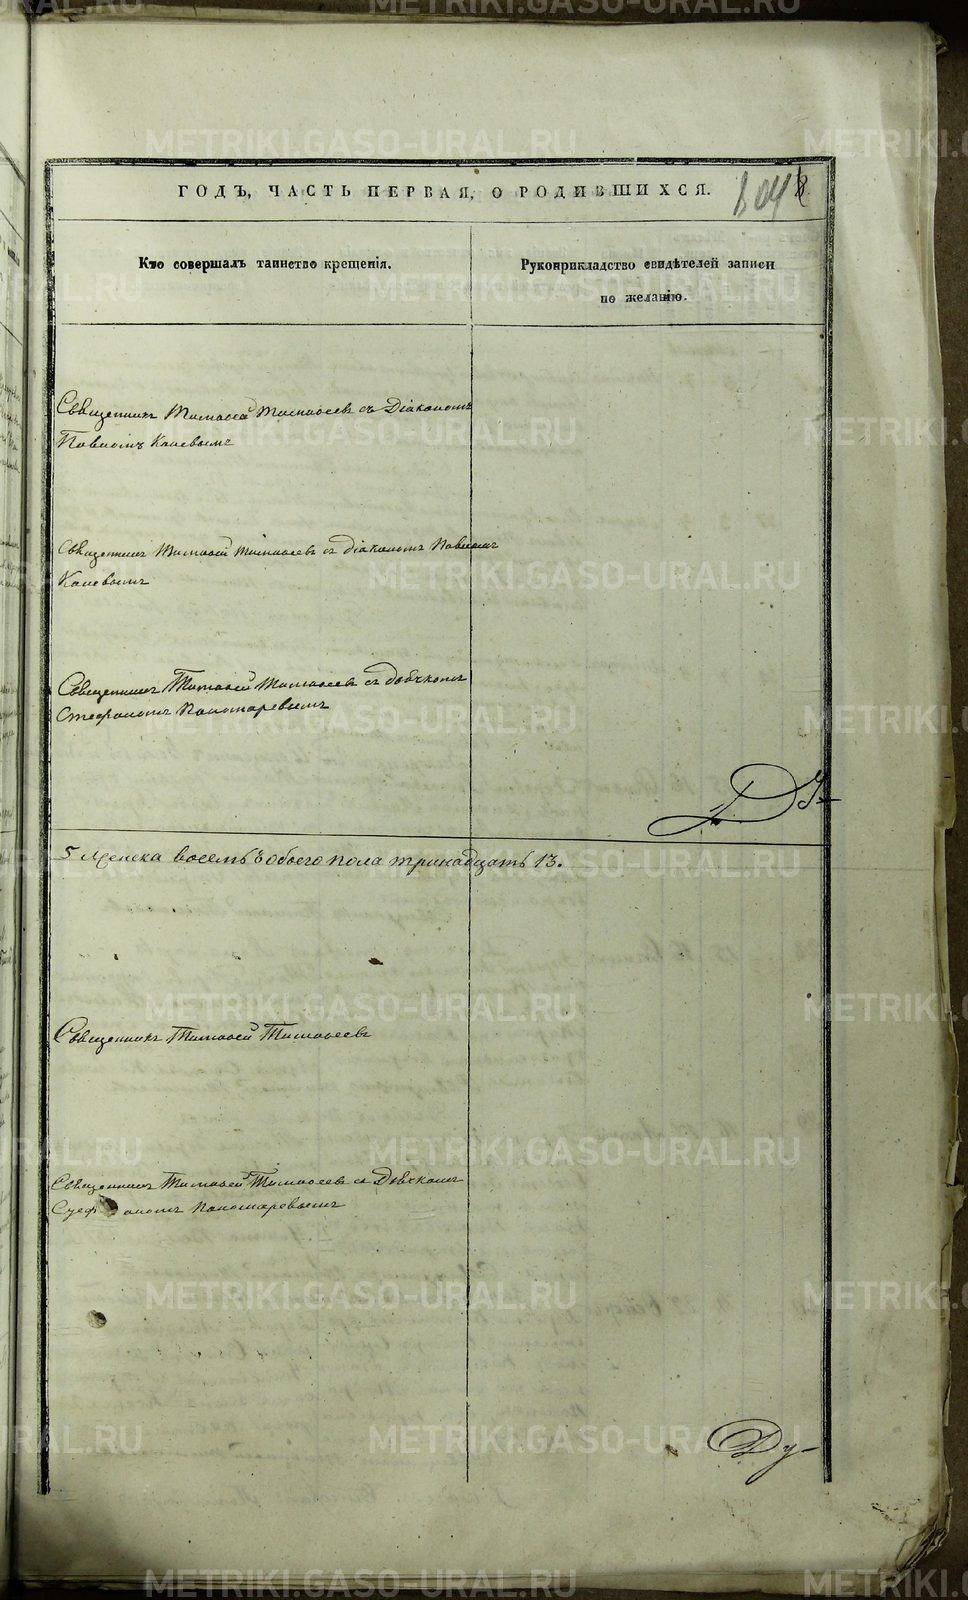 METRIKI.GASO-URAL.RU
ГОДЪ, ЧАСТЬ ПЕРВАЯ, О РОДИВШИХСЯ.
804
Кто совершалъ таинство крещенія.
Рукоприкладство свидѣтелей записи
по желанію.
Священникъ Тимофей Тимофеевъ съ Діакономъ
Павломъ Каневымъ
Священникъ Тимофей Тимофеевъ съ діакономъ Павломъ
Каневымъ
Священникъ Тимофей Тимофеевъ съ дьячкомъ
Стефаномъ Пономаревымъ
Ду-
5 женска восемь 8 обоего пола тринадцать 13.
Священникъ Тимофей Тимофеевъ
Священникъ Тимофей Тимофеевъ съ Дьячкомъ
Стефаномъ Пономаревымъ
Ду-